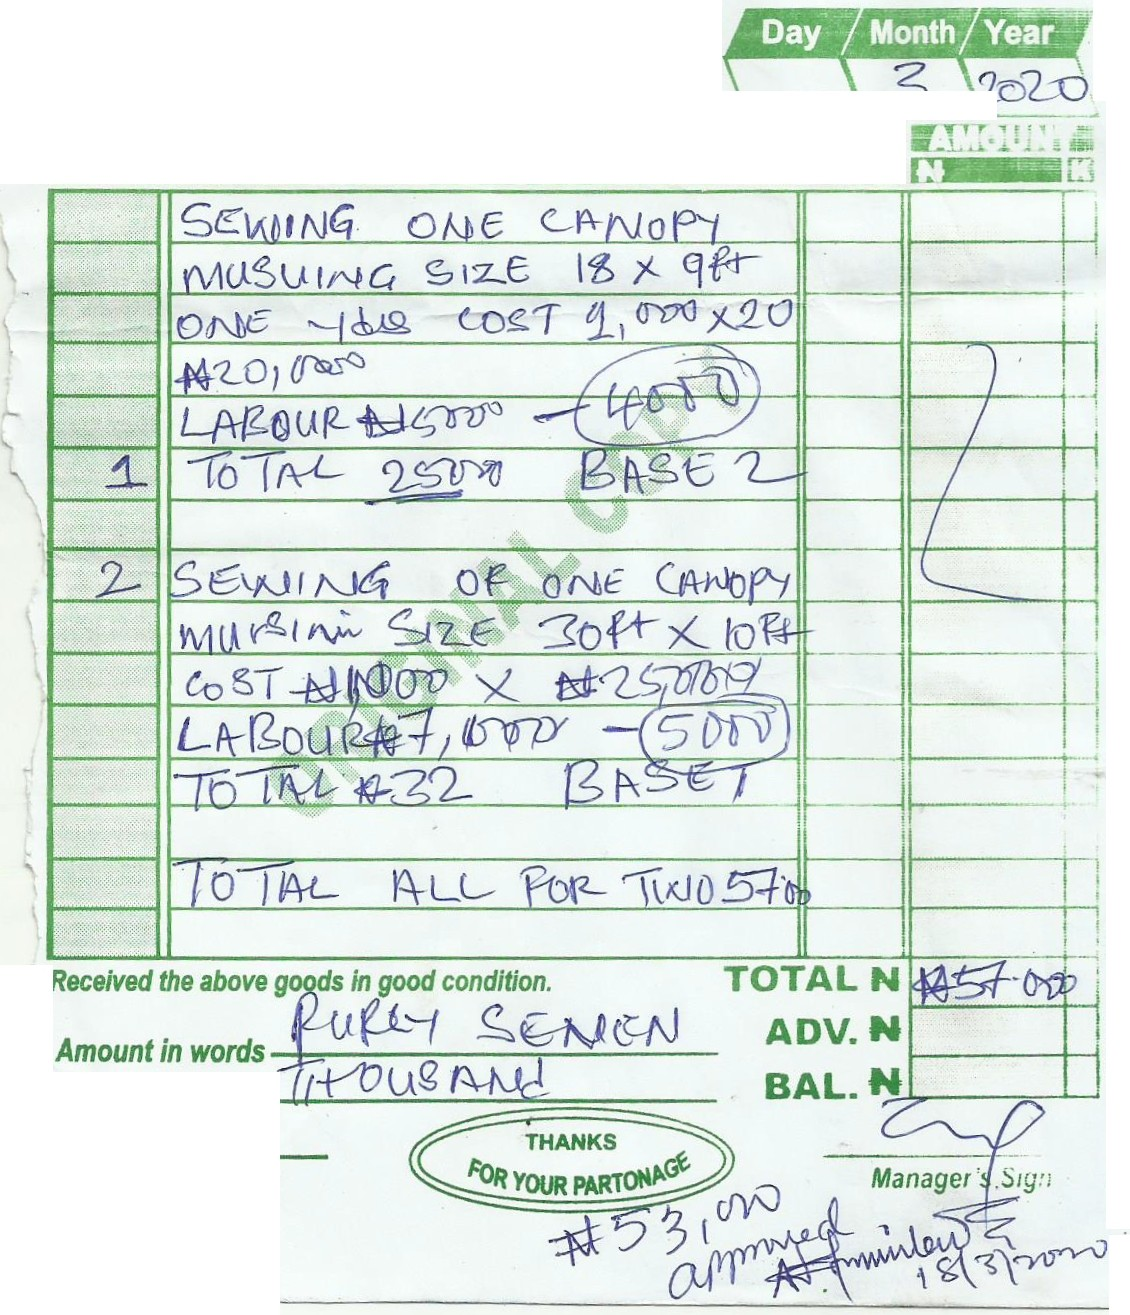 Day / Month / Year
3 2020
AMOUNT
₦ K
SEWING ONE CANOPY
MUSUING SIZE 18 X 9ft
ONE yds COST 1,000 X 20
₦20,000
LABOUR ₦5000 - 4000
1 TOTAL 25000 BASE 2
2 SEWING OF ONE CANOPY
MURSINI SIZE 30ft X 10ft
COST ₦1,000 X ₦25,000
LABOUR ₦7,000 - 5000
TOTAL ₦32 BASET
TOTAL ALL FOR TWO 57000
ORIGINAL COPY
Received the above goods in good condition.
TOTAL ₦ ₦57.000
Amount in words
THOUSAND
ADV. ₦
BAL. ₦
THANKS
FOR YOUR PARTONAGE
Manager's Sign
₦53,000
approved
18/3/2020